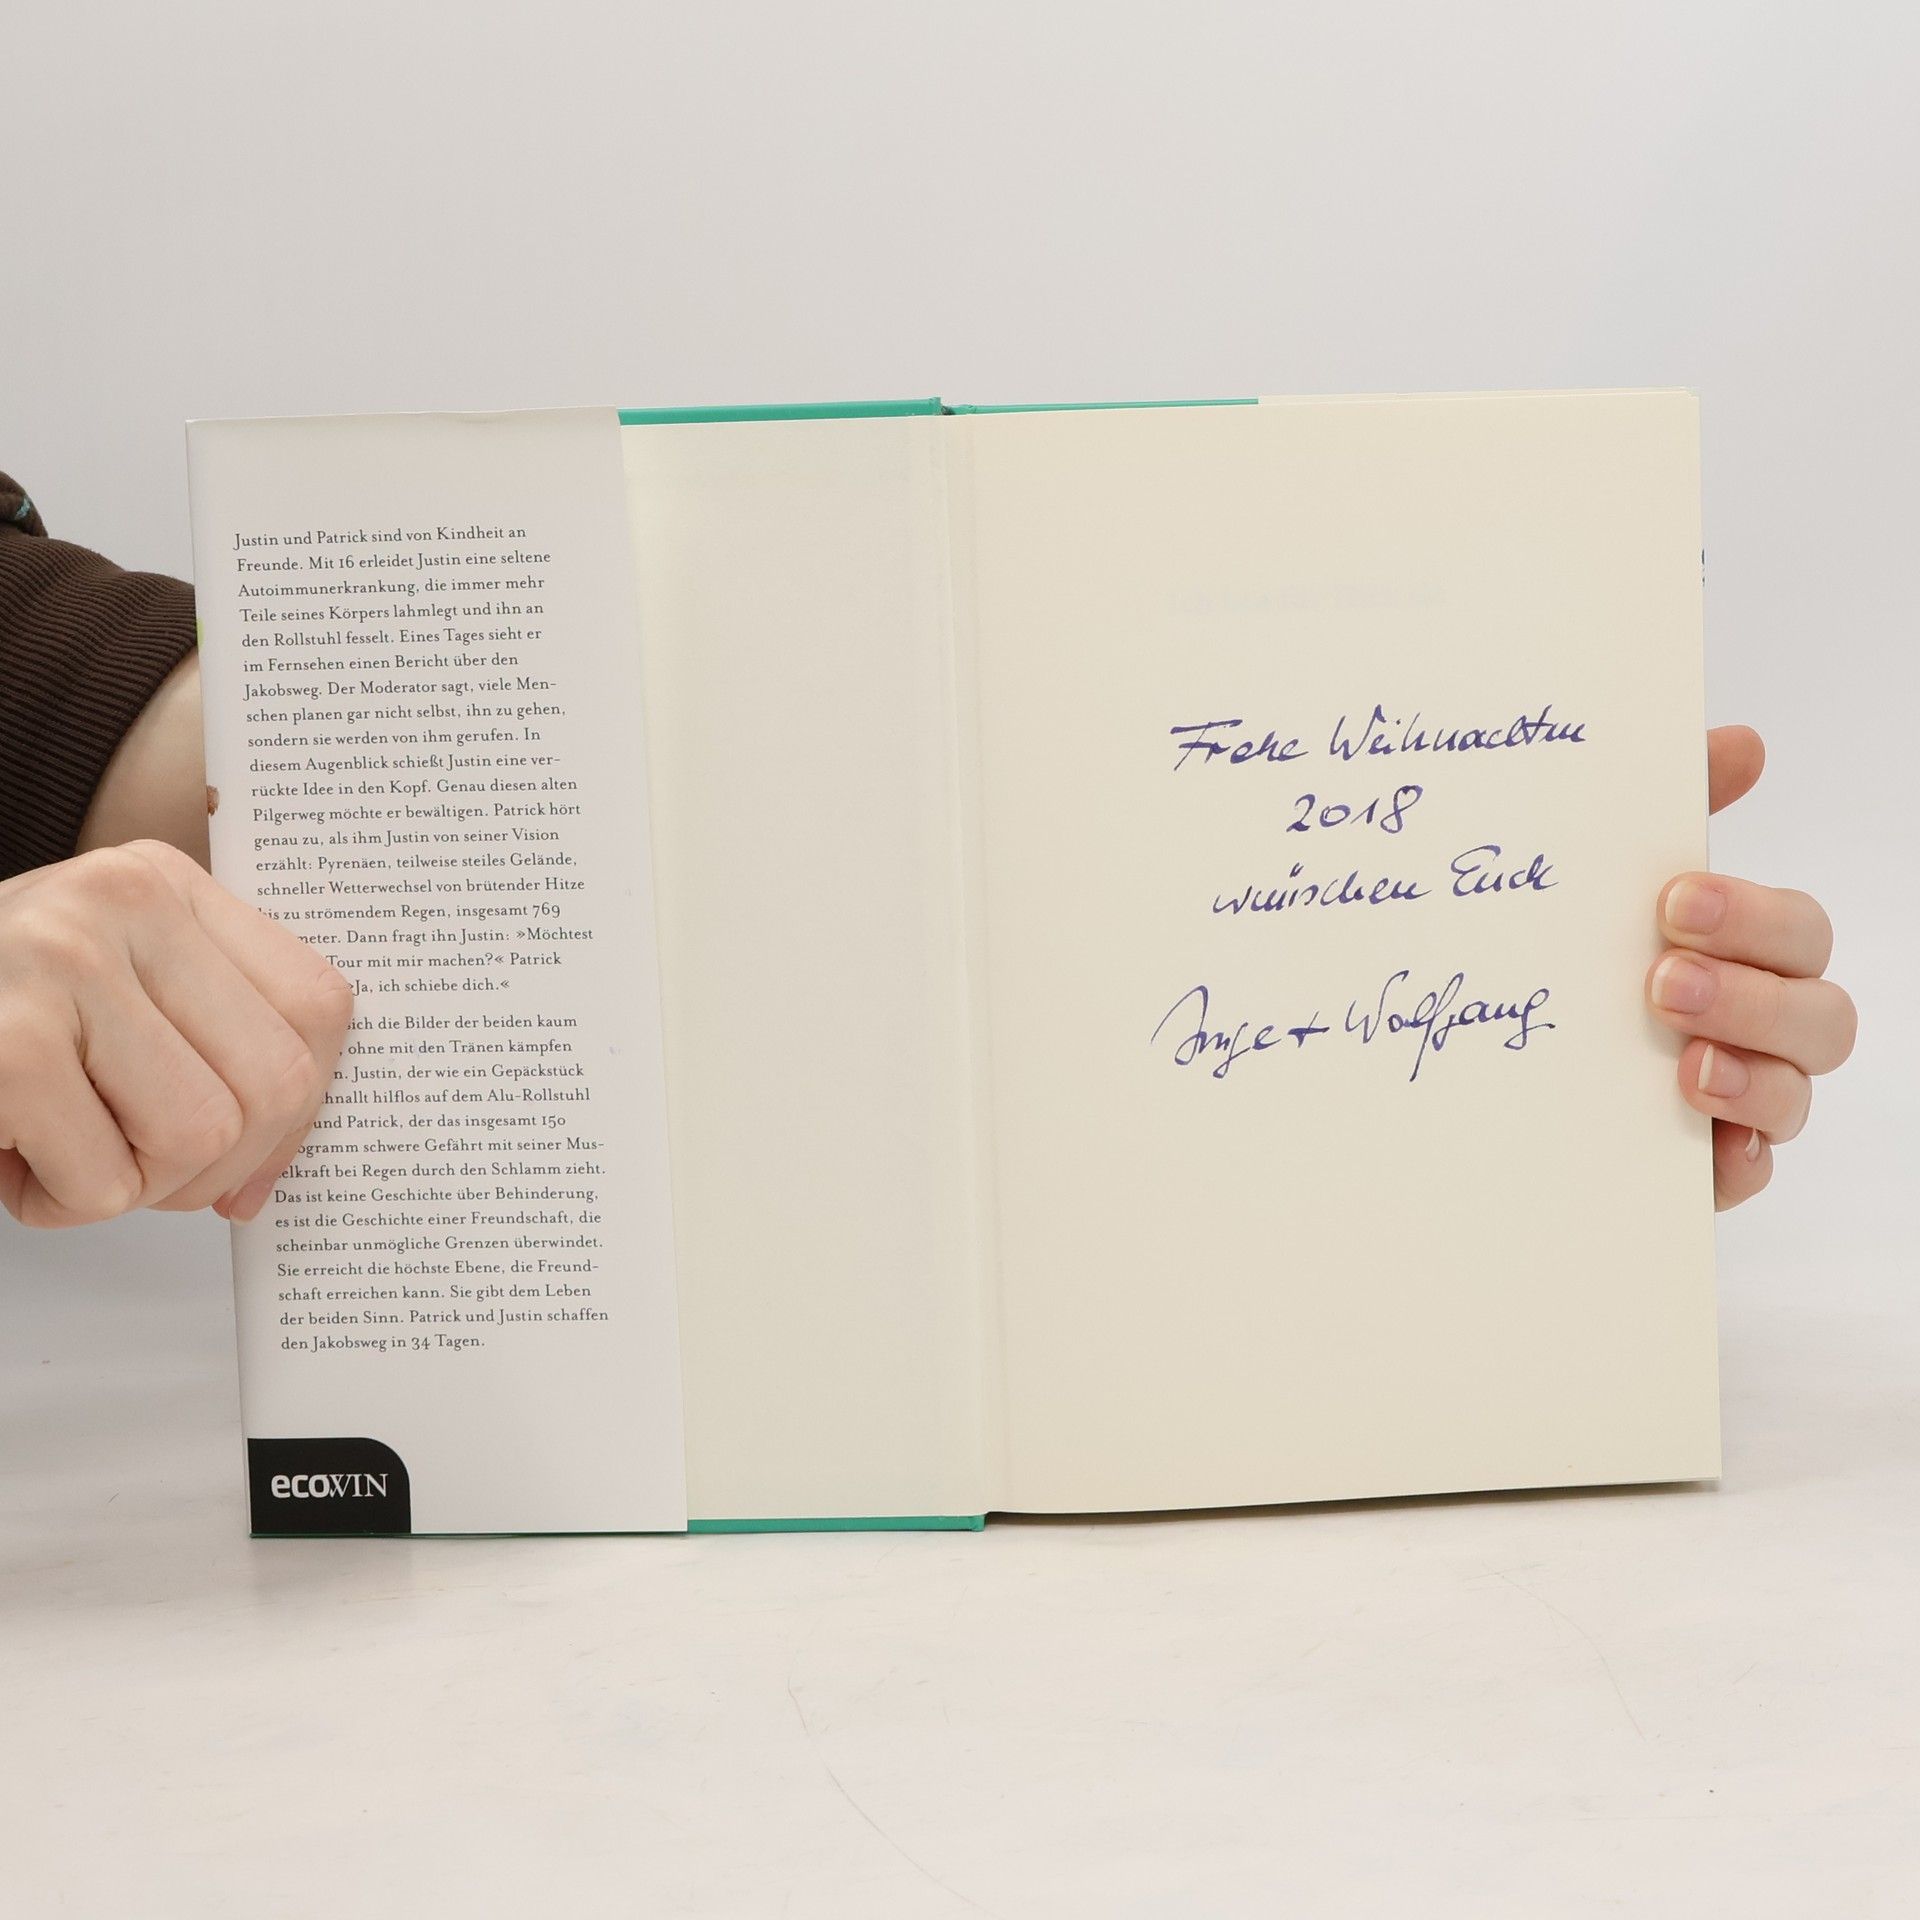 Justin und Patrick sind von Kindheit an
Freunde. Mit 16 erleidet Justin eine seltene
Autoimmunerkrankung, die immer mehr
Teile seines Körpers lahmlegt und ihn an
den Rollstuhl fesselt. Eines Tages sieht er
im Fernsehen einen Bericht über den
Jakobsweg. Der Moderator sagt, viele Men-
schen planen gar nicht selbst, ihn zu gehen,
sondern sie werden von ihm gerufen. In
diesem Augenblick schießt Justin eine ver-
rückte Idee in den Kopf. Genau diesen alten
Pilgerweg möchte er bewältigen. Patrick hört
genau zu, als ihm Justin von seiner Vision
erzählt: Pyrenäen, teilweise steiles Gelände,
schneller Wetterwechsel von brütender Hitze
bis zu strömendem Regen, insgesamt 769
meter. Dann fragt ihn Justin: »Möchtest
Tour mit mir machen?« Patrick
»Ja, ich schiebe dich.«
sich die Bilder der beiden kaum
, ohne mit den Tränen kämpfen
n. Justin, der wie ein Gepäckstück
hnallt hilflos auf dem Alu-Rollstuhl
und Patrick, der das insgesamt 150
ogramm schwere Gefährt mit seiner Mus-
elkraft bei Regen durch den Schlamm zieht.
Das ist keine Geschichte über Behinderung,
es ist die Geschichte einer Freundschaft, die
scheinbar unmögliche Grenzen überwindet.
Sie erreicht die höchste Ebene, die Freund-
schaft erreichen kann. Sie gibt dem Leben
der beiden Sinn. Patrick und Justin schaffen
den Jakobsweg in 34 Tagen.
ecoWIN
Frohe Weihnachten
2018
wünschen Euch
Inge + Wolfgang